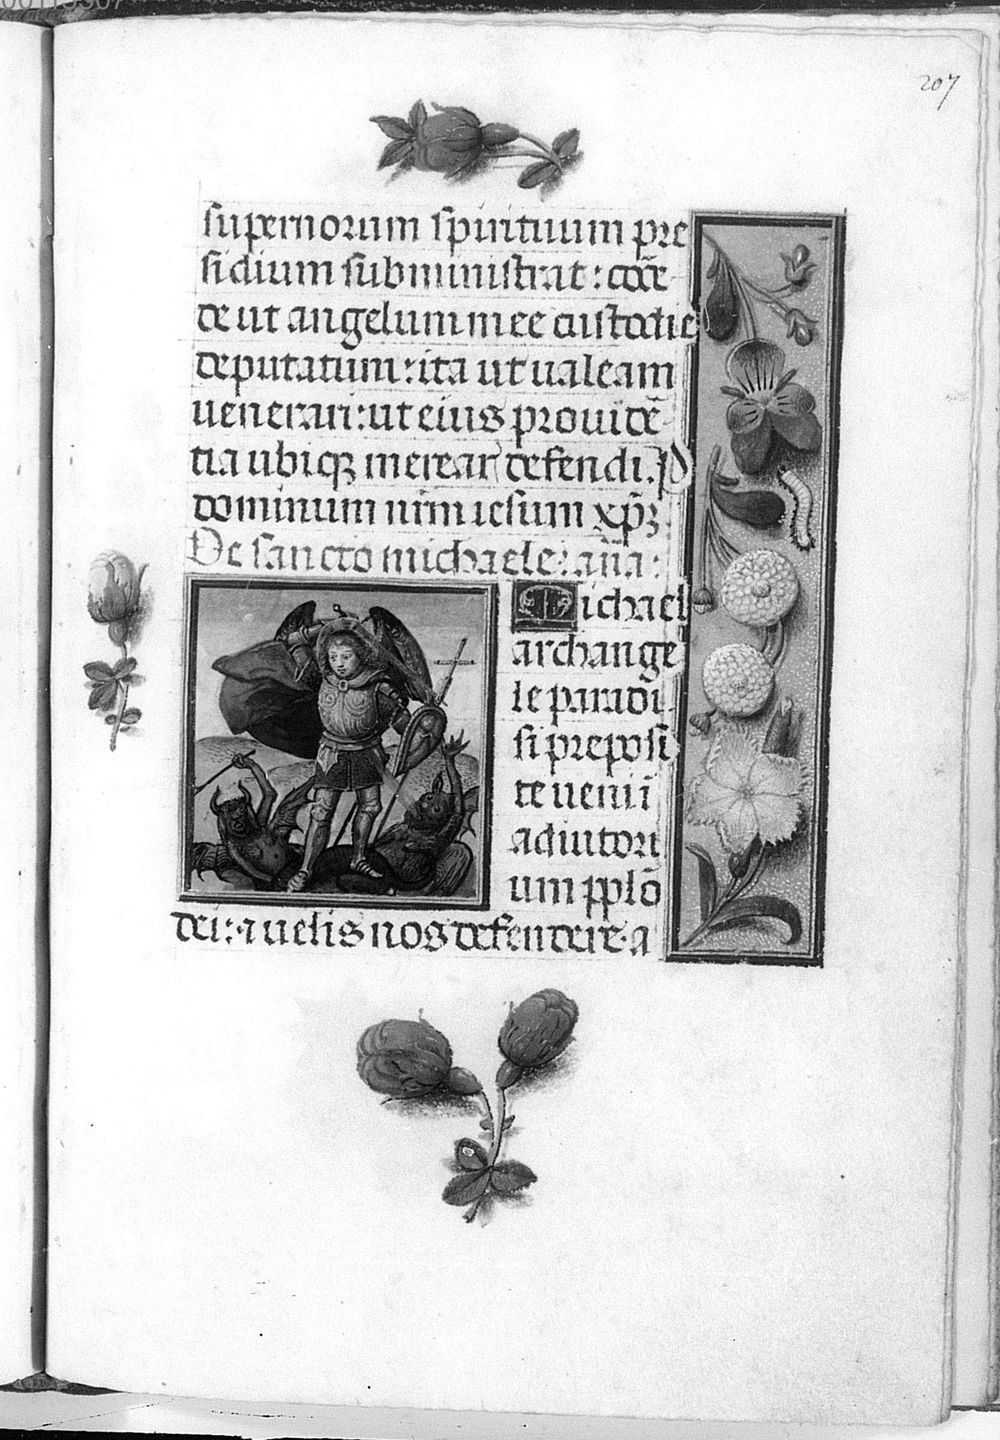 207
supernorum spirituum pre
sidium subministrat: cōce
de ut angelum mee custodie
deputatum: ita ut ualeam
uenerari: ut eius prouidē
tia ubiqꝫ merear defendi. P
dominum nr̄m iesum xp̄ꝫ.
De sancto michaele: an̄a:
Michael
archange
le paradi
si preposi
te ueni ī
adiutori
um pplō
dei: ⁊ uelis nos defendere. a